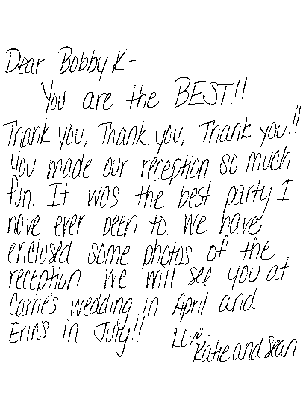 Dear Bobby K-
You are the BEST!!
Thank you, Thank you, Thank you!!
You made our reception so much
fun. It was the best party I
have ever been to. We have
enclosed some photos of the
reception We will see you at
Carrie's wedding in April and
Erin's in July!!
Katie and Sean